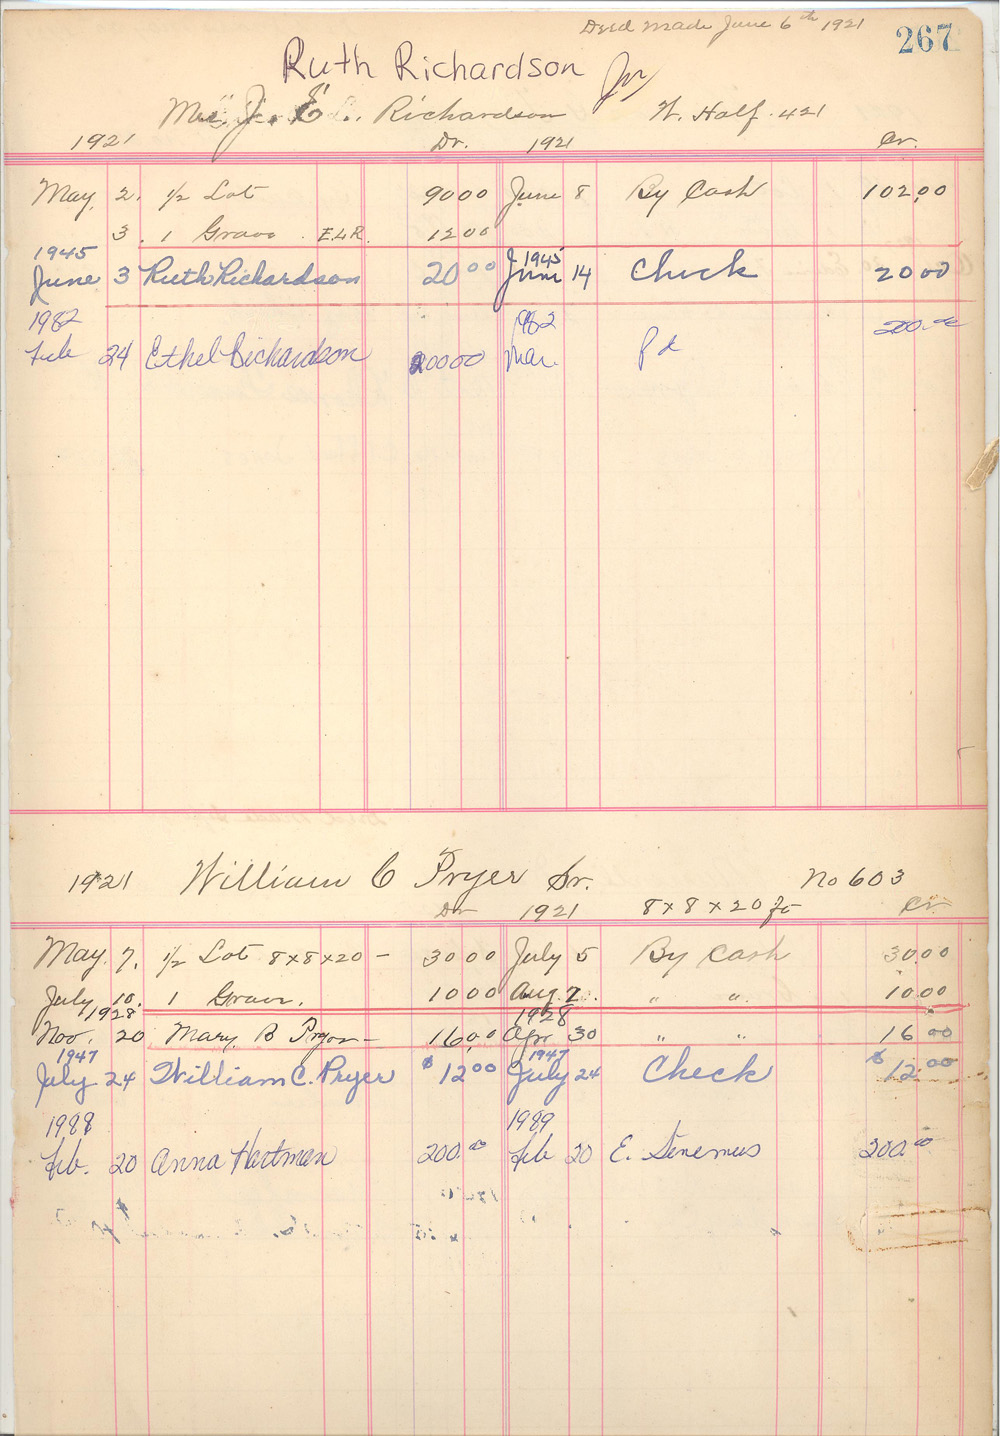 Deed Made June 6th 1921
267
Ruth Richardson
J. E. Richardson Jr W. Half. 421
1921 Dr. 1921 Cr.
May. 2. 1/2 Lot 90 00 June 8 By Cash 102.00
3. 1 Grave E.L.R. 12 00
1945 1945
June 3 Ruth Richardson 20 00 June 14 Check 20 00
1982 1982 200.00
Feb 24 Ethel Richardson 200 00 Mar. Pd
1921 William C Pryer Sr. No 603
Dr 1921 8 x 8 x 20 ft Cr.
May. 7. 1/2 Lot 8 x 8 x 20 — 30 00 July 5 By Cash 30.00
July 10. 1 Grave. 10 00 Aug. 2. " " 10.00
1928 1928
Nov. 20 Mary B Pryer — 16.00 Apr 30 " " 16 00
1947 1947
July 24 William C. Pryer $ 12 00 July 24 Check $ 12.00
1988 1989
Feb. 20 Anna Hartman 200.00 Feb 20 E. Sinemus 200.00